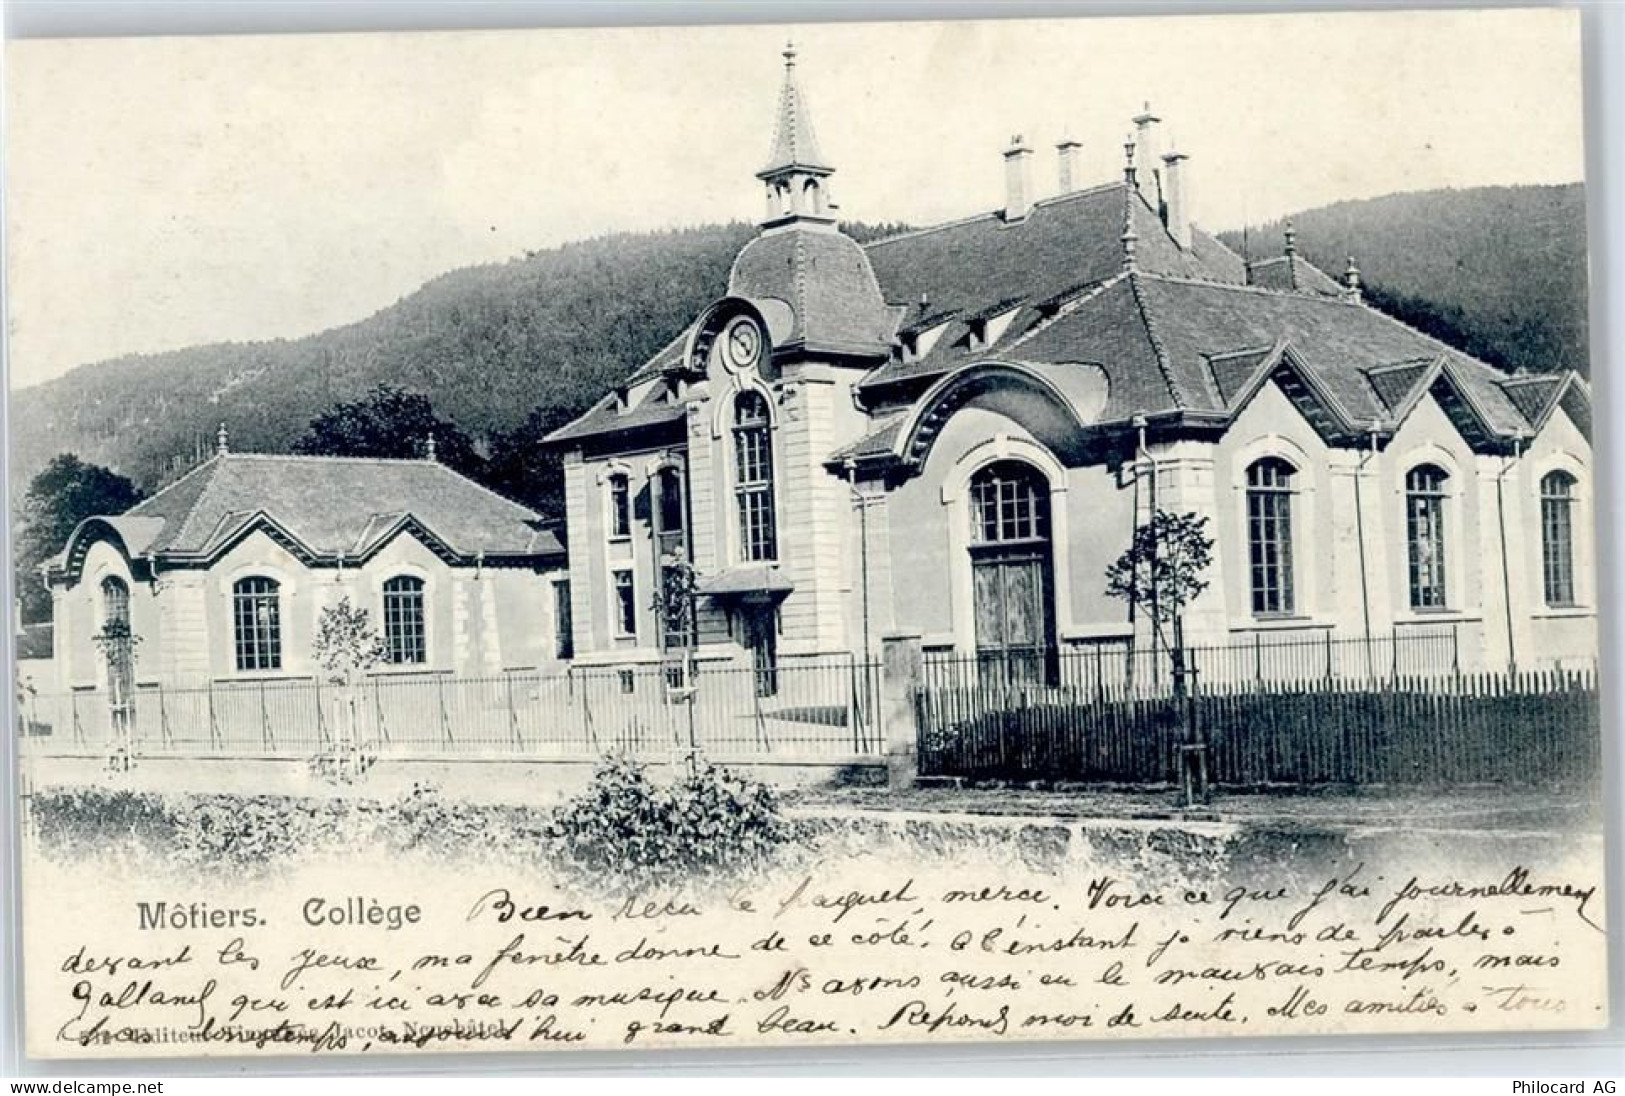 Môtiers. Collège Bien reçu le paquet, merci. Voici ce que j'ai journellement
devant les yeux, ma fenêtre donne de ce côté. A l'instant je viens de parler à
Galland qui est ici avec sa musique. Ns avons aussi eu le mauvais temps, mais
aujourd'hui grand beau. Réponds moi de suite. Mes amitiés à tous.
Jacot, Neuchâtel
www.delcampe.net
Philocard AG